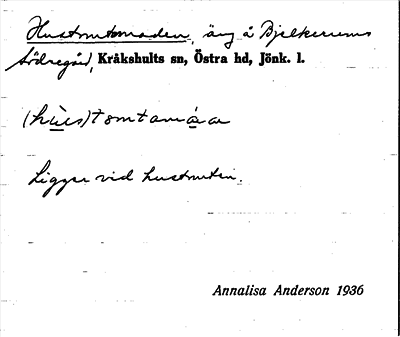 Hustomtomaden, äng å Bjelkerums
Södregård, Kråkshults sn, Östra hd, Jönk. l.
(hùs)tomtamáa
Ligger vid hustomten.
Annalisa Anderson 1936